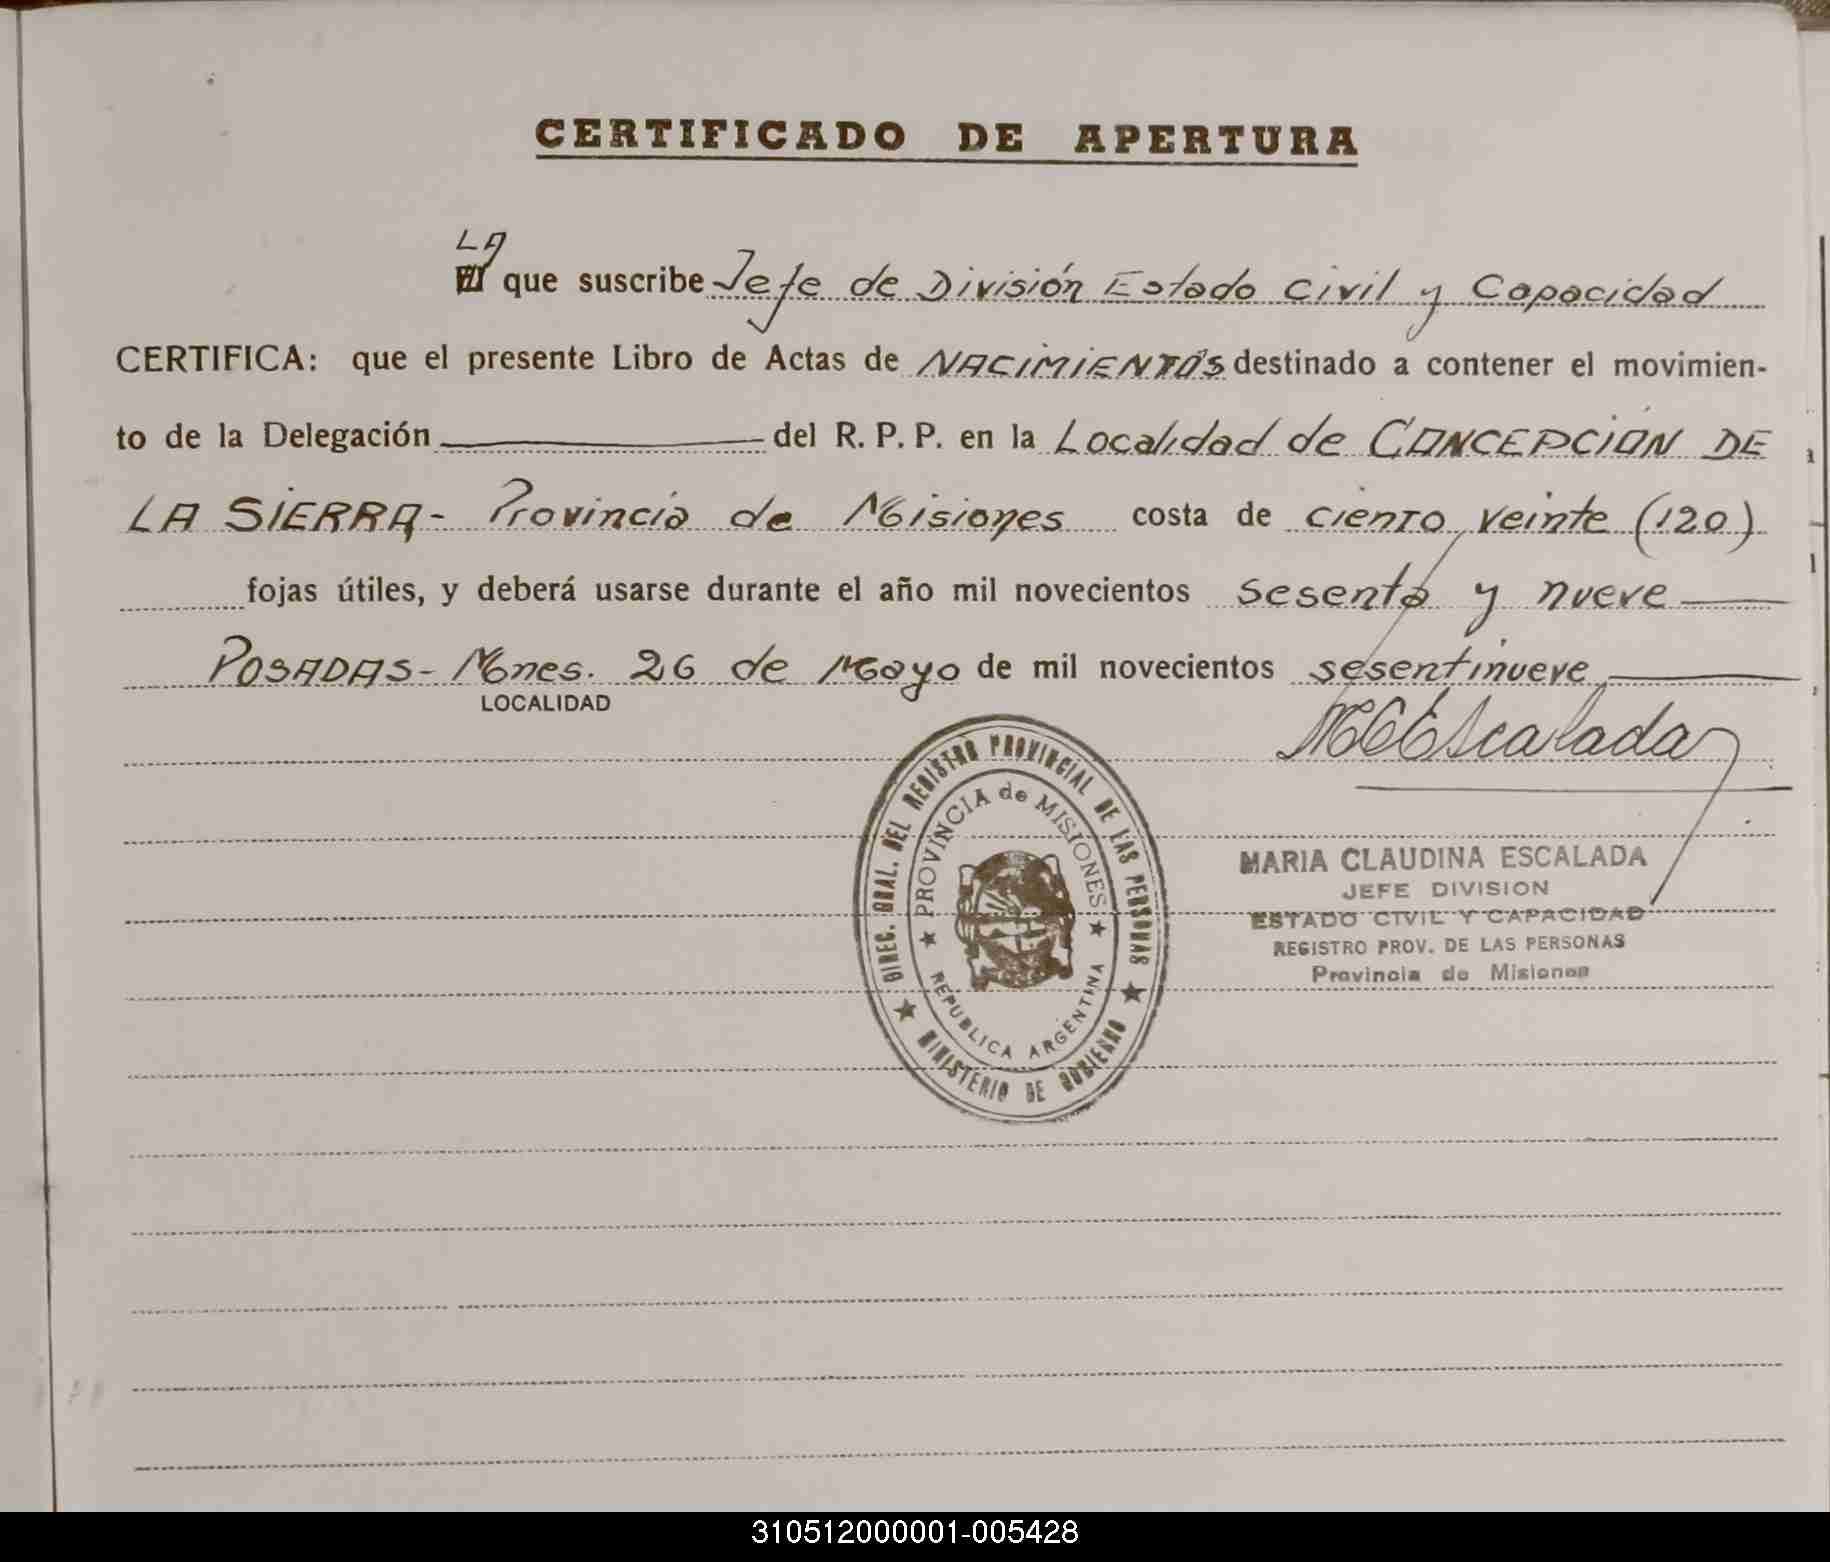 CERTIFICADO DE APERTURA
LA
El que suscribe Jefe de División Estado Civil y Capacidad
CERTIFICA: que el presente Libro de Actas de NACIMIENTOS destinado a contener el movimien-
to de la Delegación del R. P. P. en la Localidad de CONCEPCION DE
LA SIERRA- Provincia de Misiones costa de ciento veinte (120)
fojas útiles, y deberá usarse durante el año mil novecientos sesenta y nueve
POSADAS- Mnes. 26 de Mayo de mil novecientos sesentinueve
LOCALIDAD
MCEscalada
DIREC. GRAL. DEL REGISTRO PROVINCIAL DE LAS PERSONAS
MINISTERIO DE GOBIERNO
PROVINCIA de MISIONES
REPUBLICA ARGENTINA
MARIA CLAUDINA ESCALADA
JEFE DIVISION
ESTADO CIVIL Y CAPACIDAD
REGISTRO PROV. DE LAS PERSONAS
Provincia de Misiones
310512000001-005428